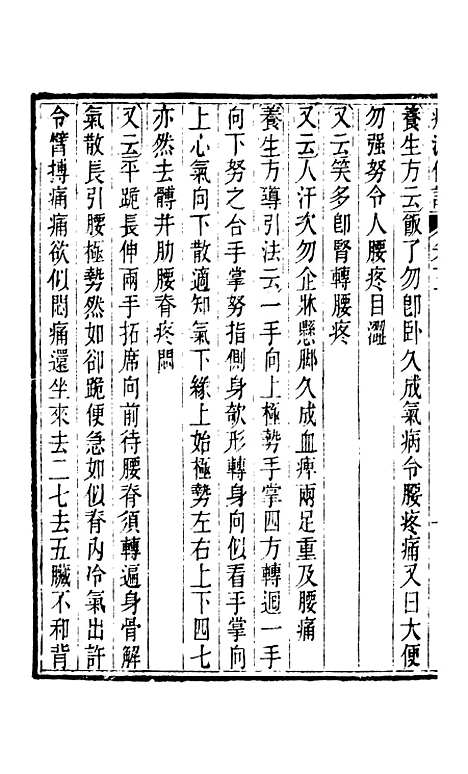 養生方云飯了勿卽卧久成氣病令腰疼痛又曰大便
勿强努令人腰疼目澀
又云笑多卽腎轉腰疼
又云人汗次勿企牀懸脚久成血痺兩足重及腰痛
養生方導引法云一手向上極勢手掌四方轉𢌞一手
向下努之合手掌努指側身欹形轉身向似看手掌向
上心氣向下散適知氣下緣上始極勢左右上下四七
亦然去髆井肋腰脊疼悶
又云平跪長伸兩手拓席向前待腰脊須轉遍身骨解
氣散長引腰極勢然如卻跪便急如似脊內冷氣出許
令臂搏痛痛欲似悶痛還坐來去二七去五臟不和背